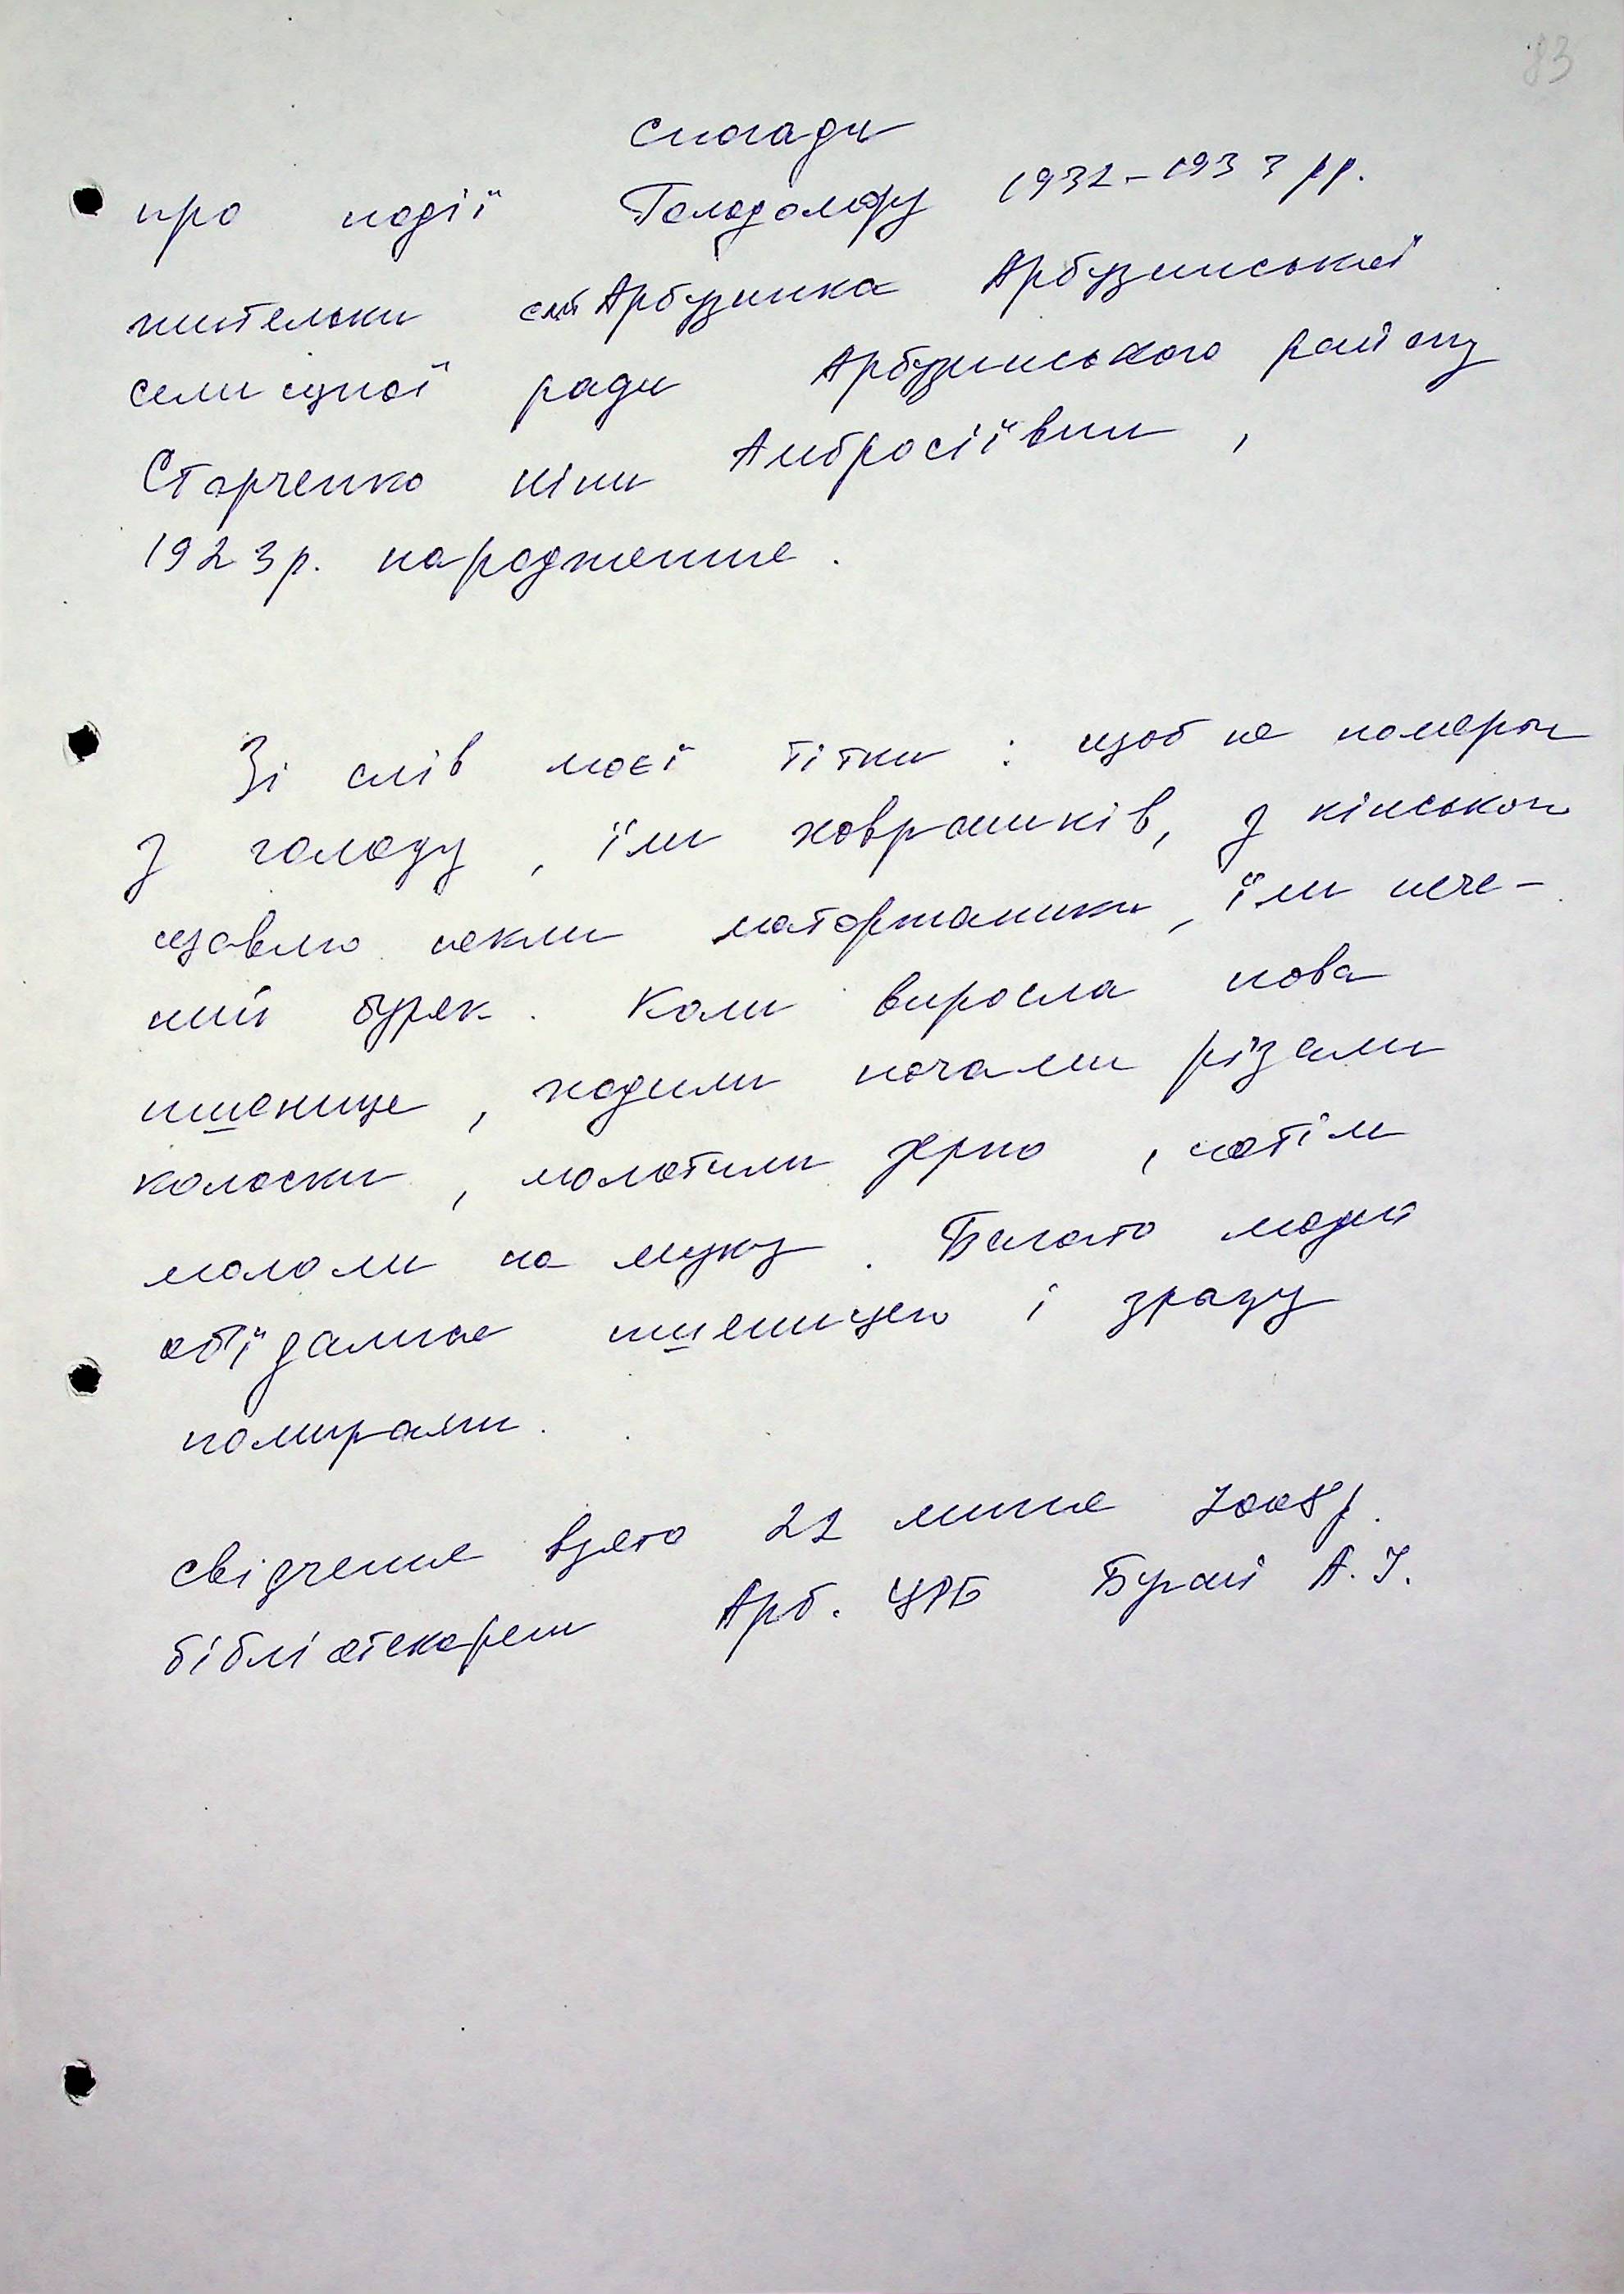 83
Спогади
про події Голодомору 1932-1933 рр.
жительки смт Арбузинка Арбузинської
селищної ради Арбузинського району
Старченко Ніни Амбросіївни,
1923р. народження.
Зі слів моєї тітки : щоб не померти
з голоду, їли ховрашків, з кінського
щавлю пекли маторжаники, їли пече-
ний буряк. Коли виросла нова
пшениця, ходили ночами різали
колоски, молотили зерно, потім
мололи на муку. Багато людей
об'їдалися пшеницею і зразу
помирали.
Свідчення взято 22 липня 2008р.
бібліотекарем Арб. ЦРБ А.І.